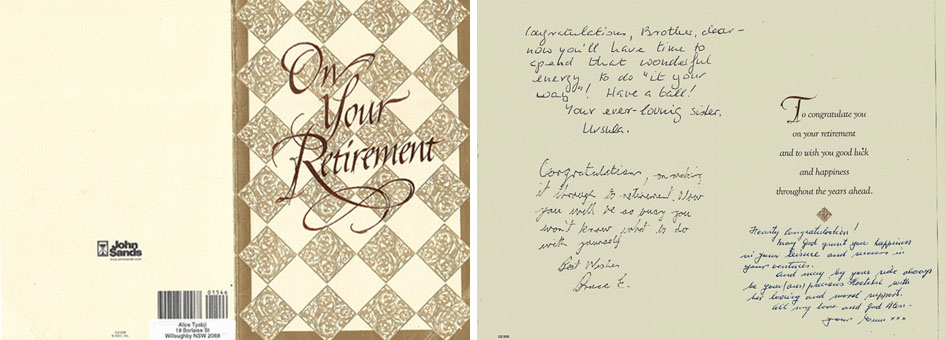 On
Your
Retirement
John
Sands
01546
Alice Tyabji
19 Borlaise St
Willoughby NSW 2068
Congratulations, Brother, dear –
now you'll have time to
spend that wonderful
energy to do "it your
way"! Have a ball!
Your ever-loving sister,
Ursula.
Congratulations, on making
it through to retirement. Now
you will be so busy you
won't know what to do
with yourself
Best Wishes
Bruce E.
To congratulate you
on your retirement
and to wish you good luck
and happiness
throughout the years ahead.
Hearty Congratulations!
May God grant you happiness
in your leisure and success in
your ventures.
And may by your side always
be your (our) precious with
her loving and moral support.
All my love and God bless –
your xxx